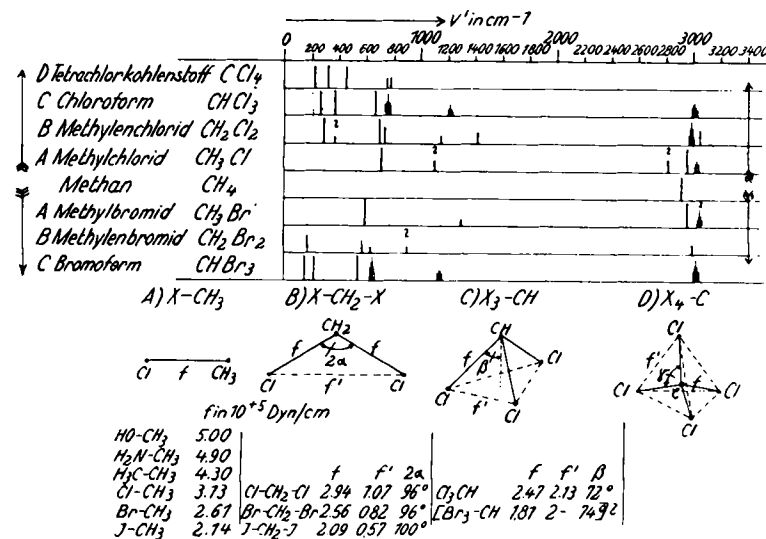 ν' in cm-1
0 200 400 600 800 1000 1200 1400 1600 1800 2000 2200 2400 2600 2800 3000 3200 3400
D Tetrachlorkohlenstoff CCl4
C Chloroform CHCl3
B Methylenchlorid CH2Cl2 2
A Methylchlorid CH3Cl 2 2
Methan CH4
A Methylbromid CH3Br 2
B Methylenbromid CH2Br2 2
C Bromoform CHBr3
A) X-CH3 B) X-CH2-X C) X3-CH D) X4-C
Cl f CH3
CH2 f f 2α Cl f' Cl
CH f β Cl Cl f' Cl
Cl f' γ f Cl C Cl Cl
f in 10+5 Dyn/cm
HO-CH3 5.00
H2N-CH3 4.90
H3C-CH3 4.30 f f' 2α f f' β
Cl-CH3 3.73 Cl-CH2-Cl 2.94 1.07 96° Cl3CH 2.47 2.13 72°
Br-CH3 2.61 Br-CH2-Br 2.56 0.82 96° [Br3-CH 1.87 2- 74°]?
J-CH3 2.14 J-CH2-J 2.09 0.57 100°